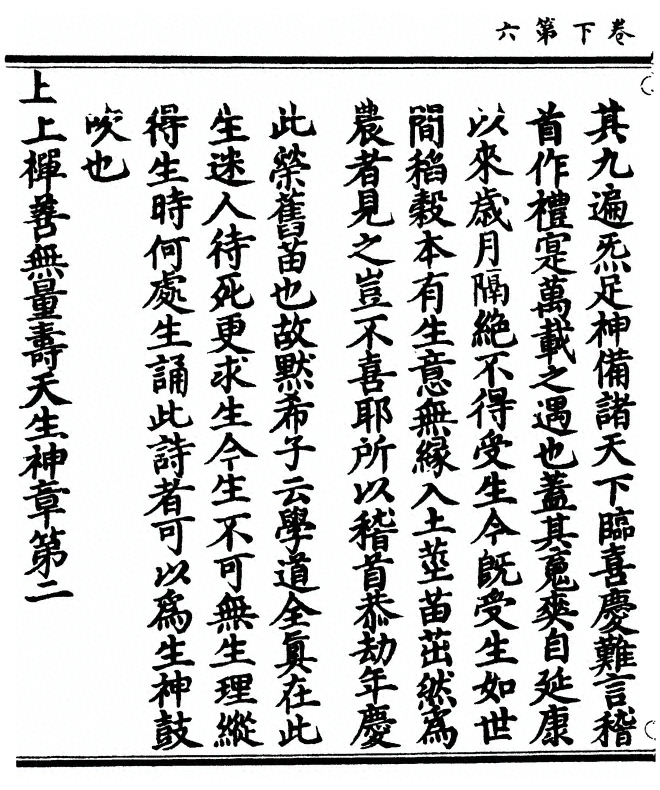 卷下第六
其九遍炁足神備諸天下臨喜慶難言稽
首作禮寔萬載之遇也蓋其䰟爽自延康
以來歲月隔絶不得受生今既受生如世
間稻穀本有生意無緣入土莖苗茁然爲
農者見之豈不喜耶所以稽首恭劫年慶
此榮舊苗也故默希子云學道全眞在此
生迷人待死更求生今生不可無生理縱
得生時何處生誦此詩者可以爲生神鼓
吹也
上上禪善無量壽天生神章第二